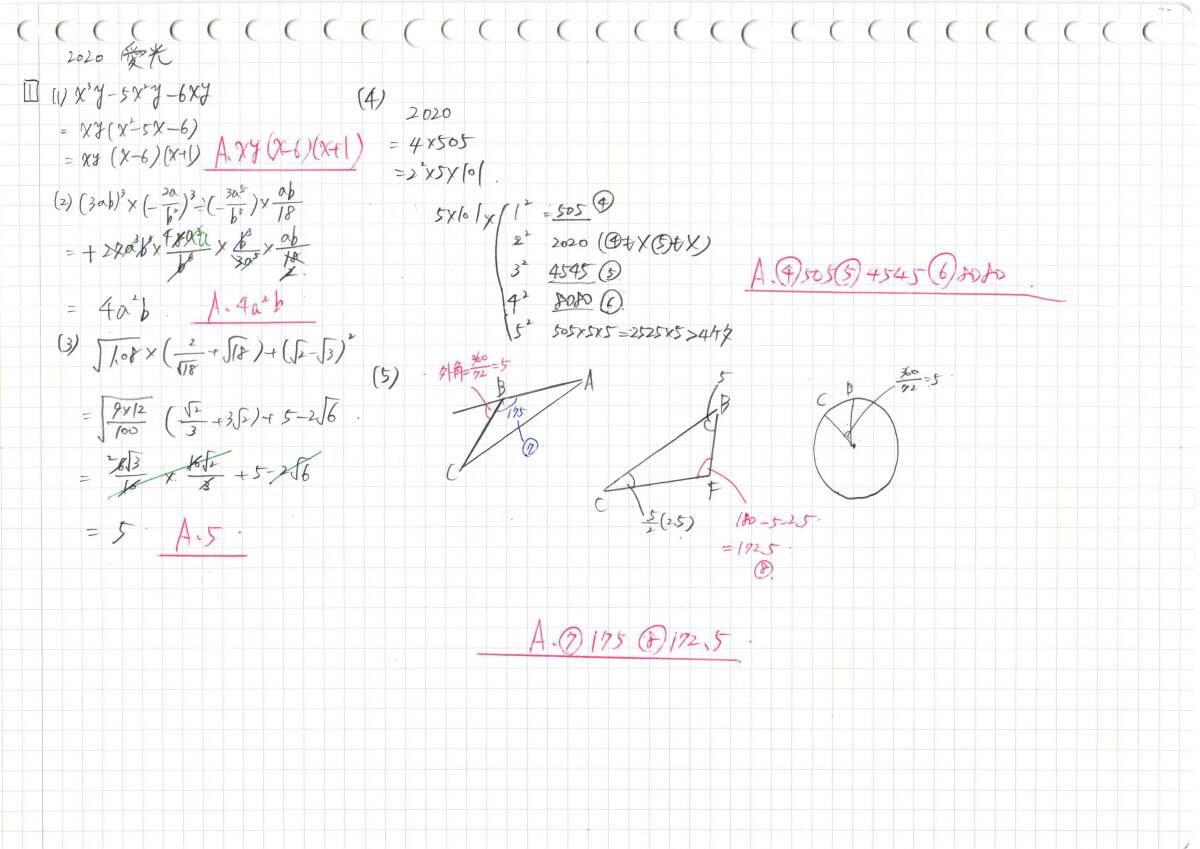 2020 愛光
1 (1) x³y-5x²y-6xy
= xy(x²-5x-6)
= xy (x-6)(x+1) A. xy(x-6)(x+1)
(2) (3ab)³×(-2a/b²)³÷(-3a⁵/b³)×ab/18
= 4a²b. A. 4a²b
(3) √1.08 × (2/√18 + √18) + (√2-√3)²
= √(9×12/100) (√2/3 + 3√2) + 5-2√6
= 6√3/10 × 10√2/3 + 5-2√6
= 5 A. 5
(4)
2020
= 4×505
= 2²×5×101.
5×101× 1² = 505 ④
2² 2020 (④も×⑤も×)
3² 4545 ⑤
4² 8080 ⑥
5² 505×5×5=2525×5>4ケタ
A. ④505⑤4545⑥8080
(5)
外角=360/72=5
B
A
175
⑦
C
5
B
C
F
5/2(2.5)
180-5-2.5
=172.5
⑧
360/72=5
C B
A. ⑦175 ⑧172.5